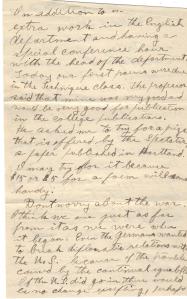 In addition to m
extra work in the English
department and having a
special conference hour
with the head of the department.
Today our first poems were due
in the Technique class. The professor
said that mine was very good and
would be very good for publication
in the college publications.
He asked me to try for a prize
that is offered by the Spectator
a paper published in Portland.
I may try for it because
$15 or $25 for a poem will
handy.
Don't worry about the war. I
think we are just as far
from it as we were when
it began. Even the Germans wanted
to break diplomatic relations with
the U.S. because of the trouble
caused by the continual
of the U.S. did go in there would
be no change